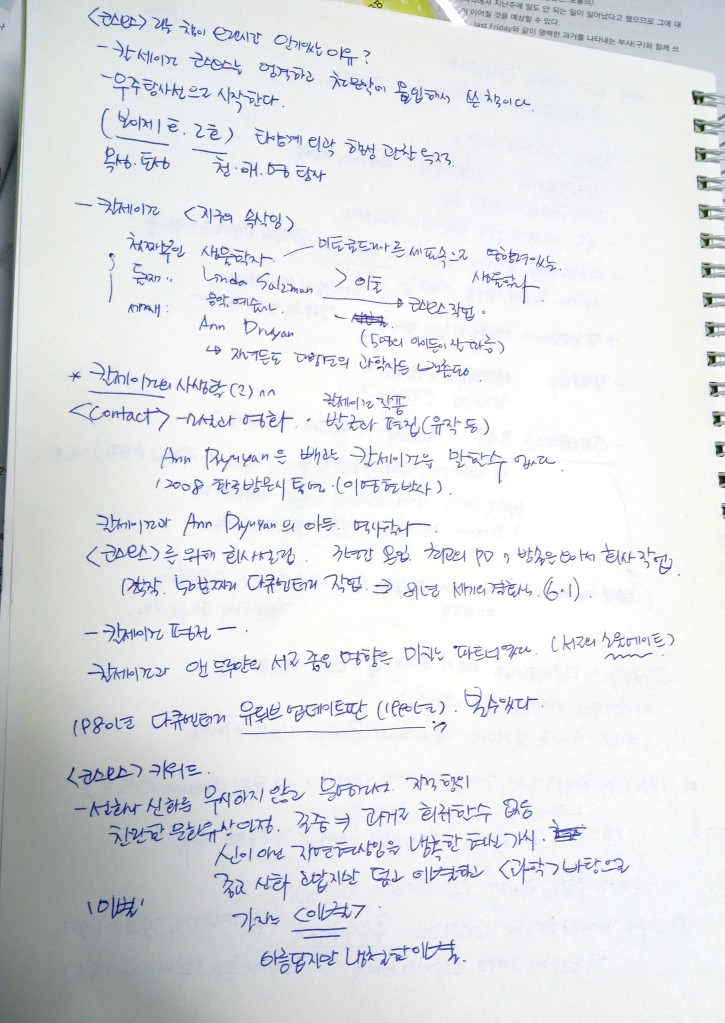 에서 지난주에 일도 안 되는 일이 일어났다고 했으므로 그에 대
이어질 것을 예상할 수 있다.
last Friday와 같이 명백한 과거를 나타내는 부사(구)와 함께 쓰
<코스모스> 과학 책이 오랜시간 인기있는 이유?
- 칼세이건 코스모스는 엄격하고 천문학에 몰입해서 쓴 책이다.
- 우주탐사선으로 시작한다.
(보이저 1호. 2호) 태양계 외곽 행성 관찰 목적
목성. 토성 천·해·명 탐사
- 칼세이건 <지구의 속삭임>
첫째부인 생물학자 미토콘드리아 다른 세포속으로 영향력있는 생물학자
둘째 : Linda Salzman > 이혼 → 코스모스 작업.
음악. 예술가
세번째 : Ann Druyan (5명의 아이들이 잘 따름)
↳ 자녀들도 다방면의 과학자들
* 칼세이건의 사생활 (2) ^^
칼세이건 작품
<Contact> - 소설과 영화. 발굴과 편집 (유작 등)
Ann Dryuyan 은 빼고는 칼세이건을 말할수 없다.
2008 한국방문시 (이명현 박사).
칼세이건과 Ann Dryuyan 의 아들.
<코스모스>를 위해 회사설립. 3년간 몰입. 최고의 PD, 방송은 모아서 회사 작업.
13부작. 50분짜리 다큐멘터리 작업. ⇒ 81년 세기의 결혼식. (6.1).
- 칼세이건 평전 -.
칼세이건과 앤 드루얀의 서로 좋은 영향을 미치는 파트너였다. (서로의 소울메이트)
1980년 다큐멘터리 유튜브 업데이트판 (1990년). 볼수있다.
<코스모스> 키워드.
- 설화나 신화를 무시하지 않고 지적 행위
찬란한 문화유산 인정. 존중 ⇒ 과거로 회귀할수 없음
신이 아닌 자연현상임을 냉혹한 현실 가시.
좋고 신화 고맙지만 덮고 이별하고 <과학> 바탕으로
'이별' 가자는 <이별>
아름답지만 냉철한 이별.